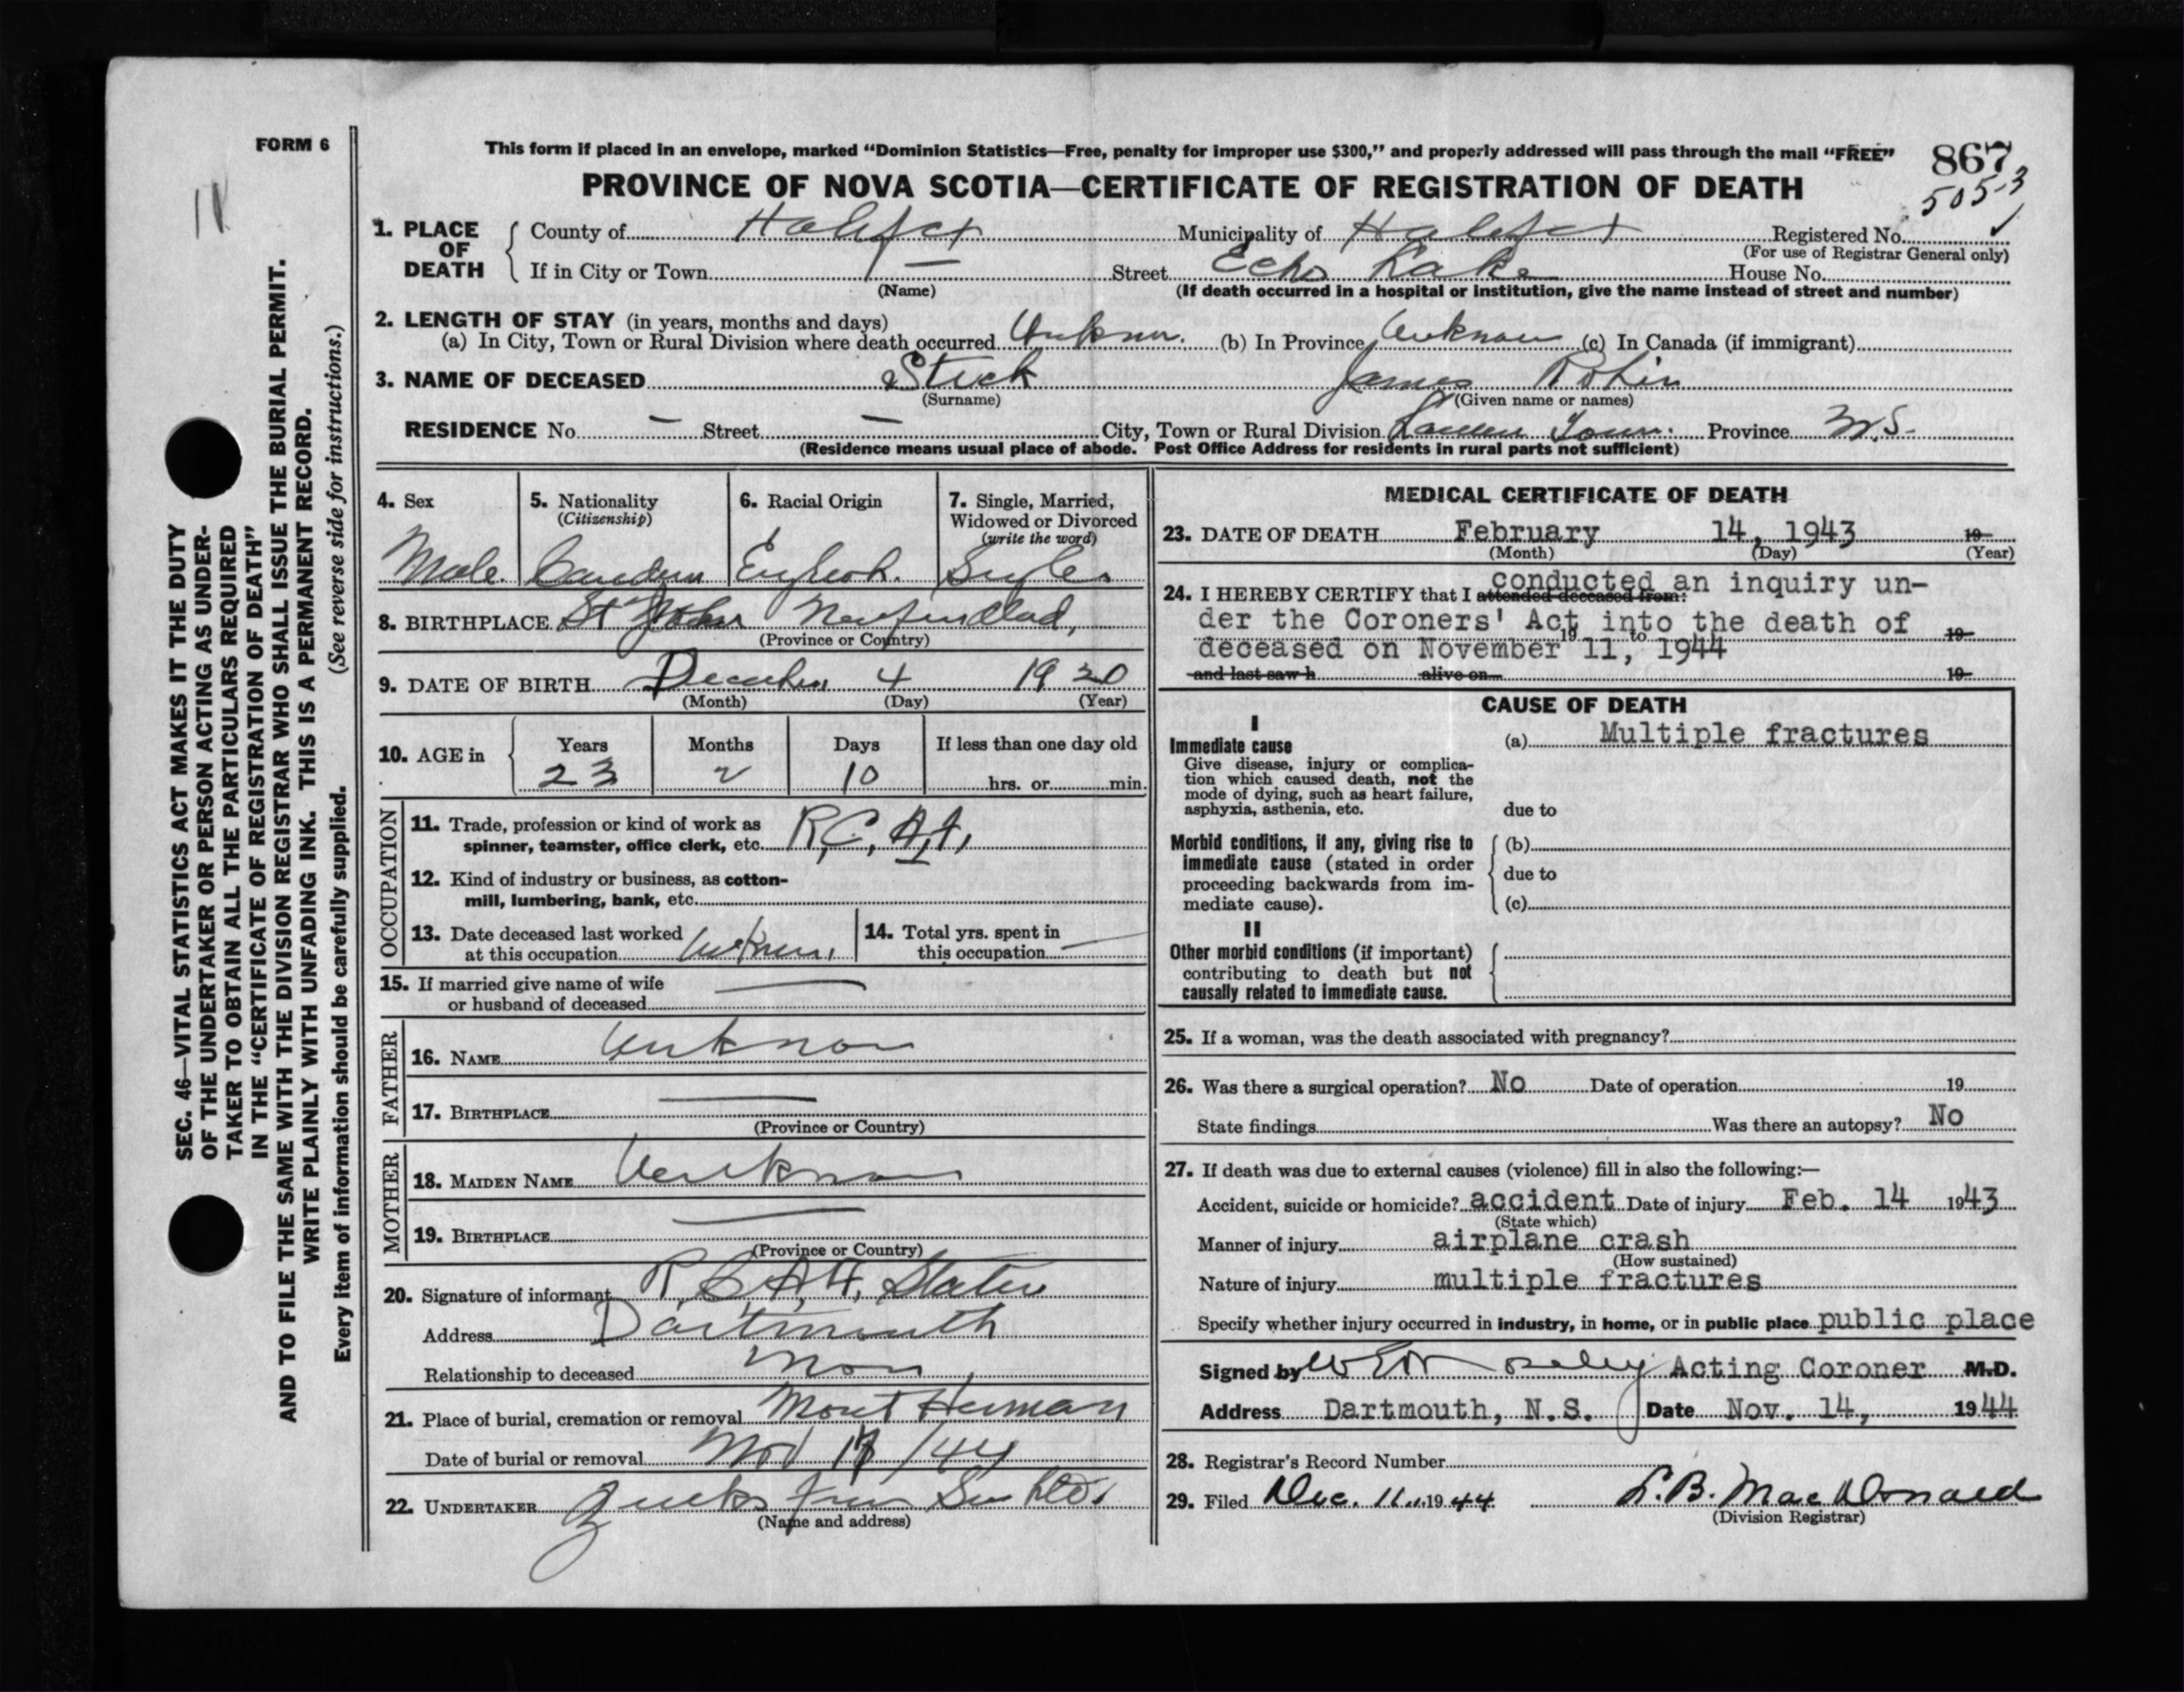 FORM 6
This form if placed in an envelope, marked “Dominion Statistics—Free, penalty for improper use $300,” and properly addressed will pass through the mail “FREE”
867
PROVINCE OF NOVA SCOTIA—CERTIFICATE OF REGISTRATION OF DEATH
5053
1. PLACE OF DEATH
County of Halifax Municipality of Halifax Registered No.
(For use of Registrar General only)
If in City or Town — Street Echo Lake House No.
(Name) (If death occurred in a hospital or institution, give the name instead of street and number)
2. LENGTH OF STAY (in years, months and days)
(a) In City, Town or Rural Division where death occurred Unknow. (b) In Province Unknow (c) In Canada (if immigrant)
3. NAME OF DECEASED Stick James Robin
(Surname) (Given name or names)
RESIDENCE No. — Street — City, Town or Rural Division Town. Province N.S.
(Residence means usual place of abode. Post Office Address for residents in rural parts not sufficient)
4. Sex
Male.
5. Nationality
(Citizenship)
Canadian
6. Racial Origin
English.
7. Single, Married,
Widowed or Divorced
(write the word)
Single
8. BIRTHPLACE St Johns Newfundland,
(Province or Country)
9. DATE OF BIRTH December 4 1920
(Month) (Day) (Year)
10. AGE in
Years Months Days If less than one day old
23 2 10 hrs. or min.
OCCUPATION
11. Trade, profession or kind of work as
spinner, teamster, office clerk, etc. R.C.A.F.
12. Kind of industry or business, as cotton-
mill, lumbering, bank, etc.
13. Date deceased last worked
at this occupation Unknow
14. Total yrs. spent in
this occupation —
15. If married give name of wife
or husband of deceased —
FATHER
16. NAME Unknow
17. BIRTHPLACE —
(Province or Country)
MOTHER
18. MAIDEN NAME Unknow
19. BIRTHPLACE —
(Province or Country)
20. Signature of informant R.C.A.F. Station
Address Dartmouth
Relationship to deceased Non
21. Place of burial, cremation or removal Mount Herman
Date of burial or removal Nov 17/44
22. UNDERTAKER
(Name and address)
MEDICAL CERTIFICATE OF DEATH
23. DATE OF DEATH February 14, 1943 19
(Month) (Day) (Year)
24. I HEREBY CERTIFY that I attended deceased from: conducted an inquiry un-
der the Coroners' Act into the death of
19 to 19
deceased on November 11, 1944
and last saw h alive on 19
CAUSE OF DEATH
I
Immediate cause
Give disease, injury or complica-
tion which caused death, not the
mode of dying, such as heart failure,
asphyxia, asthenia, etc.
(a) Multiple fractures
due to
Morbid conditions, if any, giving rise to
immediate cause (stated in order
proceeding backwards from im-
mediate cause).
(b)
due to
(c)
II
Other morbid conditions (if important)
contributing to death but not
causally related to immediate cause.
25. If a woman, was the death associated with pregnancy?
26. Was there a surgical operation? No Date of operation 19
State findings Was there an autopsy? No
27. If death was due to external causes (violence) fill in also the following:—
Accident, suicide or homicide? accident Date of injury Feb. 14 1943
(State which)
Manner of injury airplane crash
(How sustained)
Nature of injury multiple fractures
Specify whether injury occurred in industry, in home, or in public place public place
Signed by Acting Coroner M.D.
Address Dartmouth, N.S. Date Nov. 14, 1944
28. Registrar's Record Number
29. Filed Dec. 11 1944 L.B. MacDonald
(Division Registrar)
SEC. 46—VITAL STATISTICS ACT MAKES IT THE DUTY
OF THE UNDERTAKER OR PERSON ACTING AS UNDER-
TAKER TO OBTAIN ALL THE PARTICULARS REQUIRED
IN THE “CERTIFICATE OF REGISTRATION OF DEATH”
AND TO FILE THE SAME WITH THE DIVISION REGISTRAR WHO SHALL ISSUE THE BURIAL PERMIT.
WRITE PLAINLY WITH UNFADING INK. THIS IS A PERMANENT RECORD.
Every item of information should be carefully supplied. (See reverse side for instructions.)